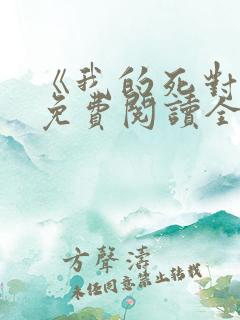 《我的死對
免費閱讀全
方聲濤
未任同意禁止轉載